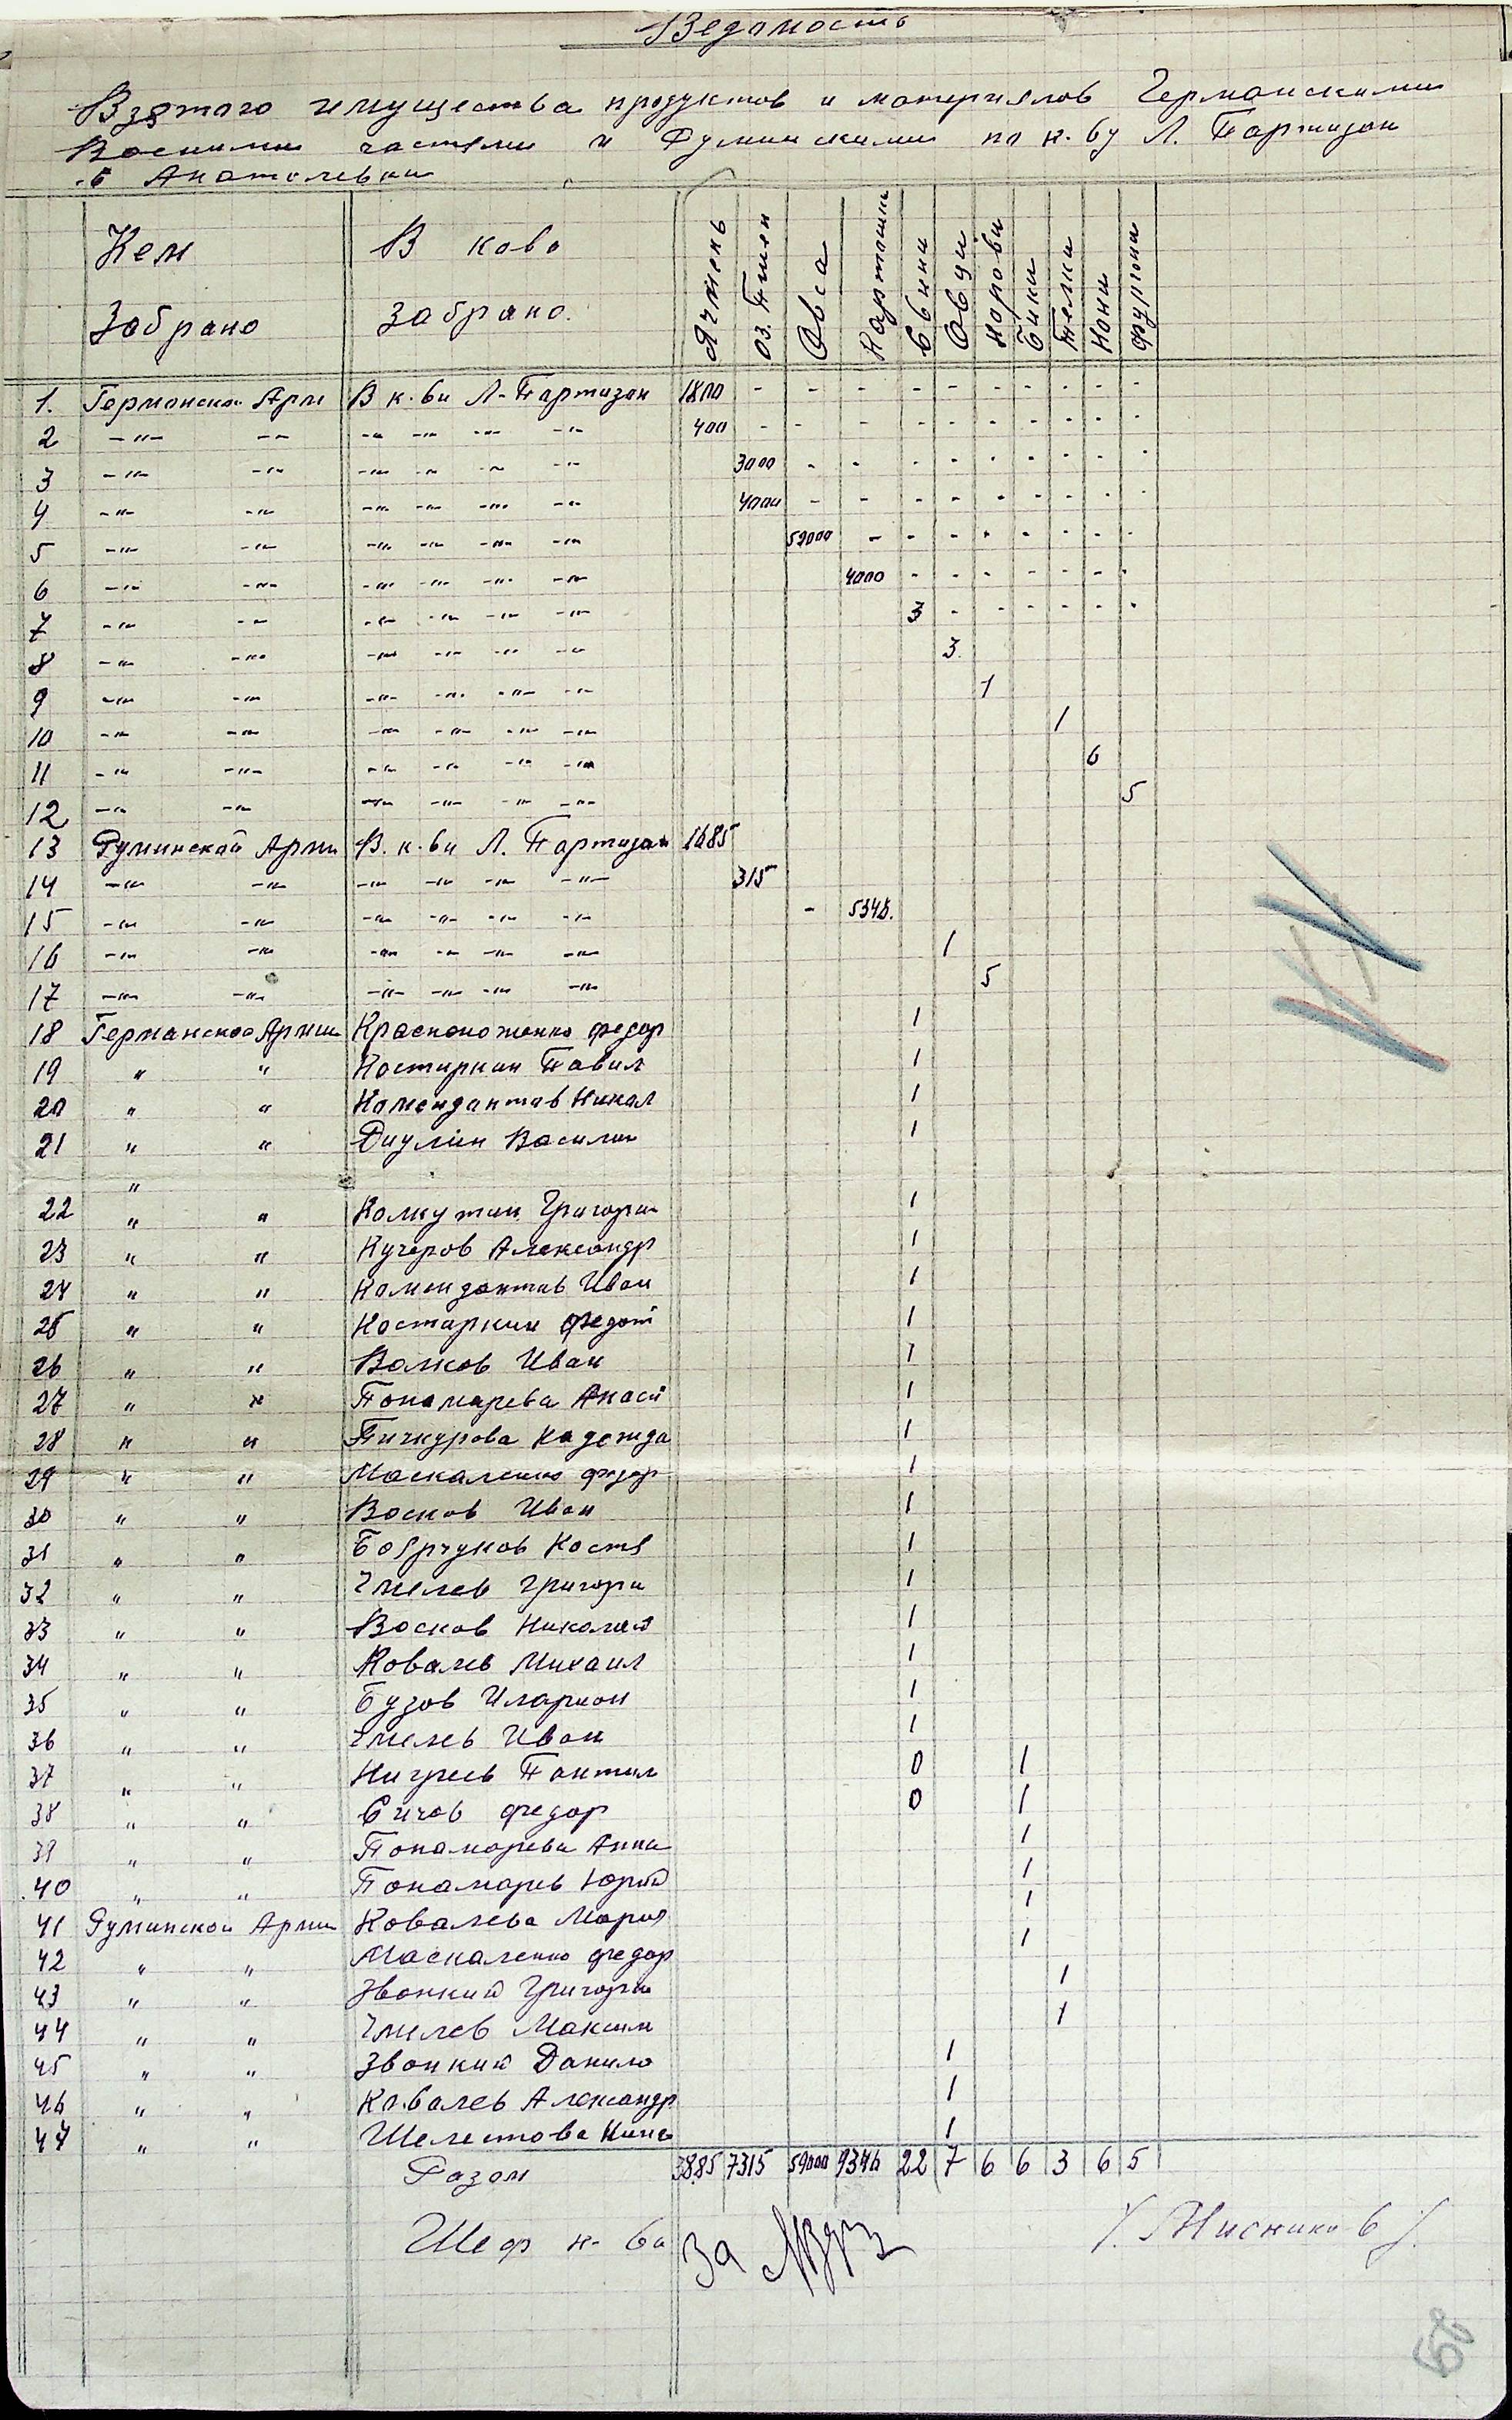 Ведомость
Взятого имущества продуктов и материялов Германскими
Военими частями и Румински­ми по к-ву Л. Партизан
с Анатолевки
Кем Забрано | В ково забрано. | Ячмень | Оз. Пшен | Овса | Картошка | Свини | Овци | Корови | Бики | Телки | Кони | Фургони
1. Германской Арм В к-ви Л-Партизан 1800 - - - - - - - - - -
2 -"- -"- -"- -"- -"- -"- 400 - - - - - - - - - -
3 -"- -"- -"- -"- -"- -"- 3000 - - - - - - - - -
4 -"- -"- -"- -"- -"- -"- 4000 - - - - - - - - -
5 -"- -"- -"- -"- -"- -"- 59000 - - - - - - - -
6 -"- -"- -"- -"- -"- -"- 4000 - - - - - - -
7 -"- -"- -"- -"- -"- -"- 3 - - - - - -
8 -"- -"- -"- -"- -"- -"- 3
9 -"- -"- -"- -"- -"- -"- 1
10 -"- -"- -"- -"- -"- -"- 1
11 -"- -"- -"- -"- -"- -"- 6
12 -"- -"- -"- -"- -"- -"- 5
13 Руминской Арми В. к-ви Л. Партизан 1685
14 -"- -"- -"- -"- -"- -"- 315
15 -"- -"- -"- -"- -"- -"- - 5346.
16 -"- -"- -"- -"- -"- -"- 1
17 -"- -"- -"- -"- -"- -"- 5
18 Германской Армии Красноноженко Федор 1
19 " " Костиркин Павил 1
20 " " Комендантов Никол 1
21 " " Диулин Василии 1
"
22 " " Колкутин Григори 1
23 " " Кучеров Александр 1
24 " " Комендантов Иван 1
25 " " Костиркин Федот 1
26 " " Волков Иван 1
27 " " Пономарева Анаси 1
28 " " Пичкурова Надежда 1
29 " " Маскаленко Федор 1
30 " " Восков Иван 1
31 " " Костя 1
32 " " Хмелев Григори 1
33 " " Восков Николай 1
34 " " Ковалев Михаил 1
35 " " Бузов Иларион 1
36 " " Хмелев Иван 1
37 " " Пантил 0 1
38 " " Сичов Федор 0 1
39 " " Пономорева Анна 1
40 " " Пономорев Юрий 1
41 Руминской Арми Ковалева Мория 1
42 " " Маскаленко Федор 1
43 " " Звонкий Григори 1
44 " " Хмилев Максим 1
45 " " Звонкий Данило 1
46 " " Ковалев Александр 1
47 " " Шелестова Нина 1
Разом 3885 7315 59000 9346 22 7 6 6 3 6 5
Шеф к-ва За /. Мисников /.
58